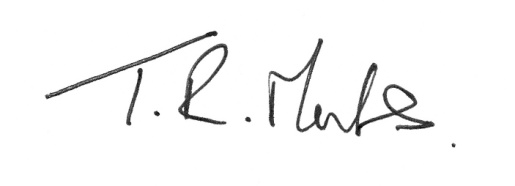 T. R. Marks.